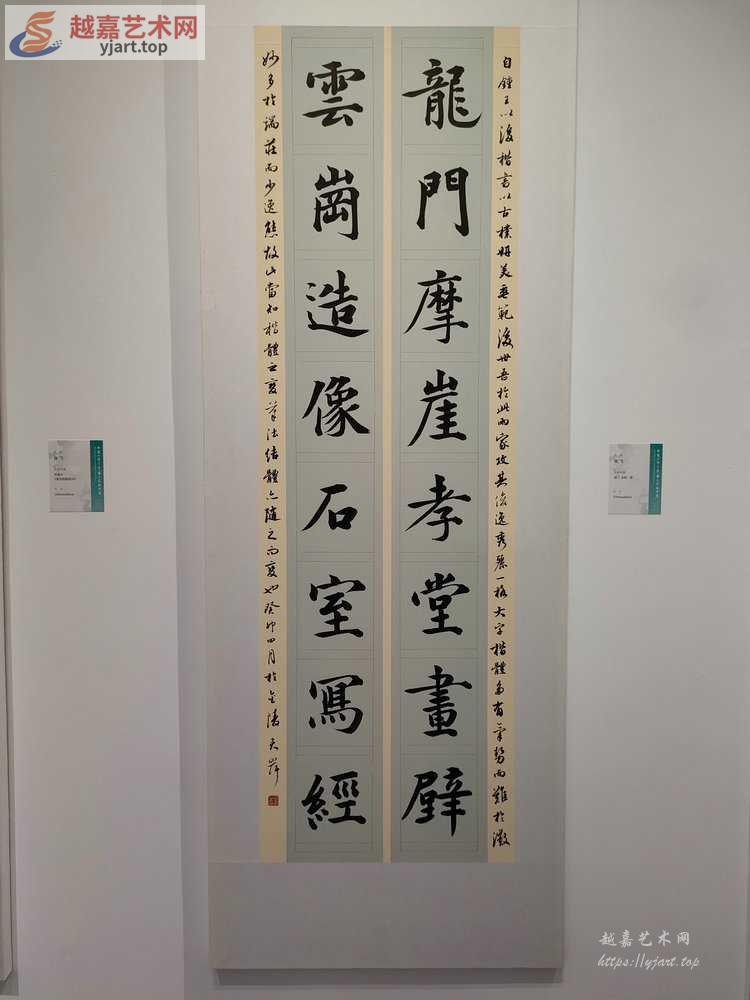 越嘉艺术网
yjart.top
自鍾王以後楷書以古樸妍美垂範後世吾於此兩家攻其俊逸秀麗一格大字楷體多有氣勢而難於微
龍門摩崖孝堂畫壁
雲崗造像石室寫經
妙多於端莊而少逸態故此當知楷體之變筆法結體亦隨之而變也癸卯四月於金陵天岸
越嘉艺术网
https://yjart.top